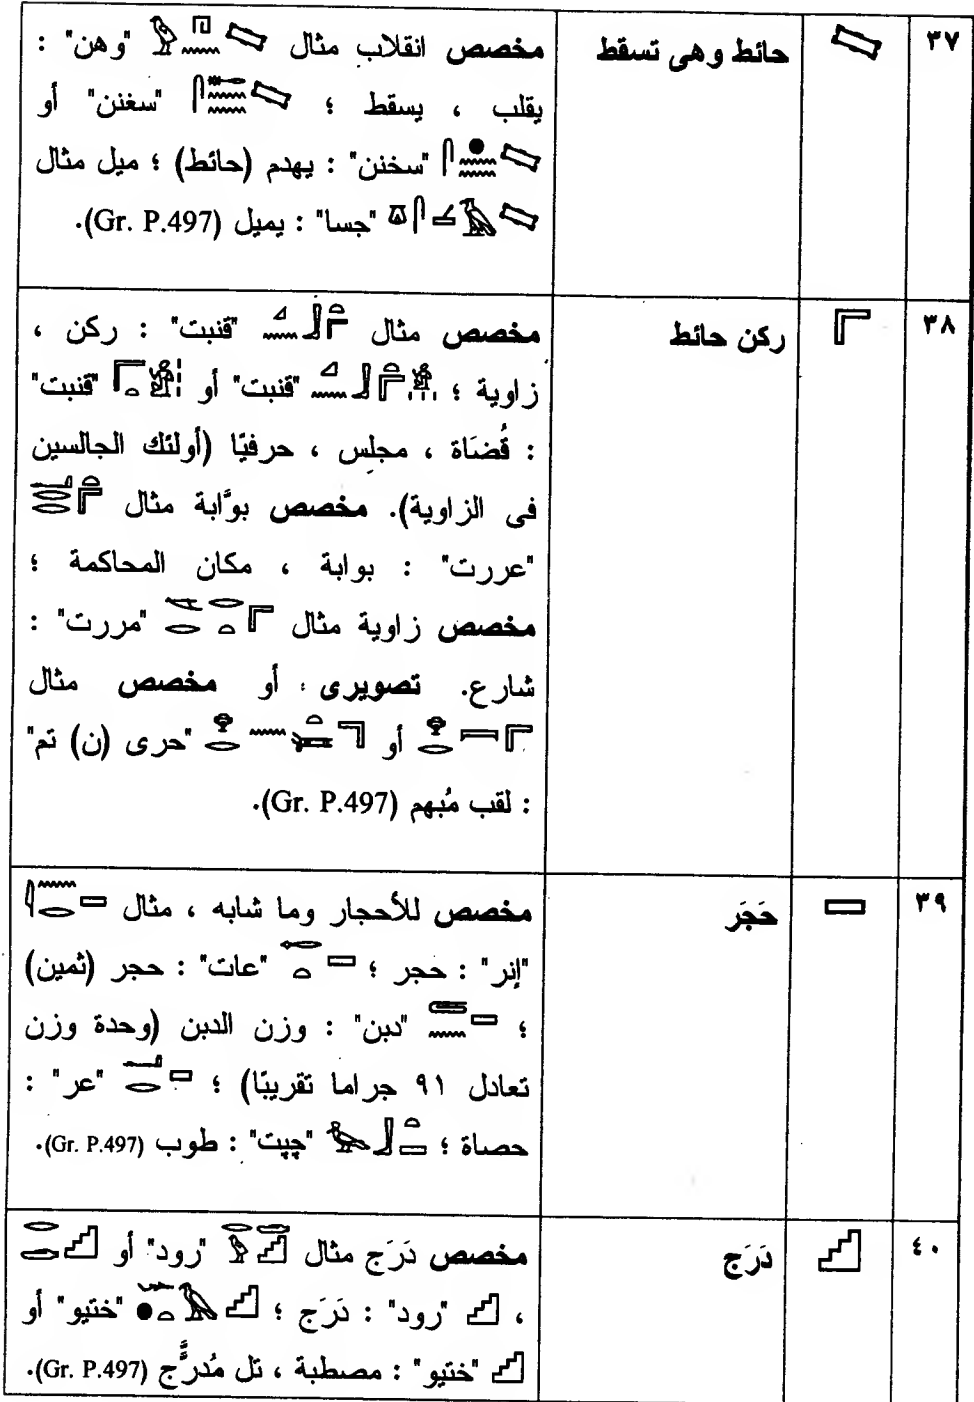 ٣٧ حائط وهى تسقط مخصص انقلاب مثال "وهن" :
يقلب ، يسقط ؛ "سغنن" أو
"سخنن" : يهدم (حائط) ؛ ميل مثال
"جسا" : يميل (Gr. P.497).
٣٨ ركن حائط مخصص مثال "قنبت" : ركن ،
زاوية ؛ "قنبت" أو "قنبت"
: قُضَاة ، مجلس ، حرفيًا (أولئك الجالسين
فى الزاوية). مخصص بوَّابة مثال
"عررت" : بوابة ، مكان المحاكمة ؛
مخصص زاوية مثال "مررت" :
شارع. تصويرى أو مخصص مثال
أو "حرى (ن) تم"
: لقب مُبهم (Gr. P.497).
٣٩ حَجَر مخصص للأحجار وما شابه ، مثال
"إنر" : حجر ؛ "عات" : حجر (ثمين)
؛ "دبن" : وزن الدبن (وحدة وزن
تعادل ٩١ جراما تقريبًا) ؛ "عر" :
حصاة ؛ "چبت" : طوب (Gr. P.497).
٤٠ دَرَج مخصص دَرَج مثال "رود" أو
، "رود" : دَرَج ؛ "ختيو" أو
"ختيو" : مصطبة ، تل مُدرَّج (Gr. P.497).